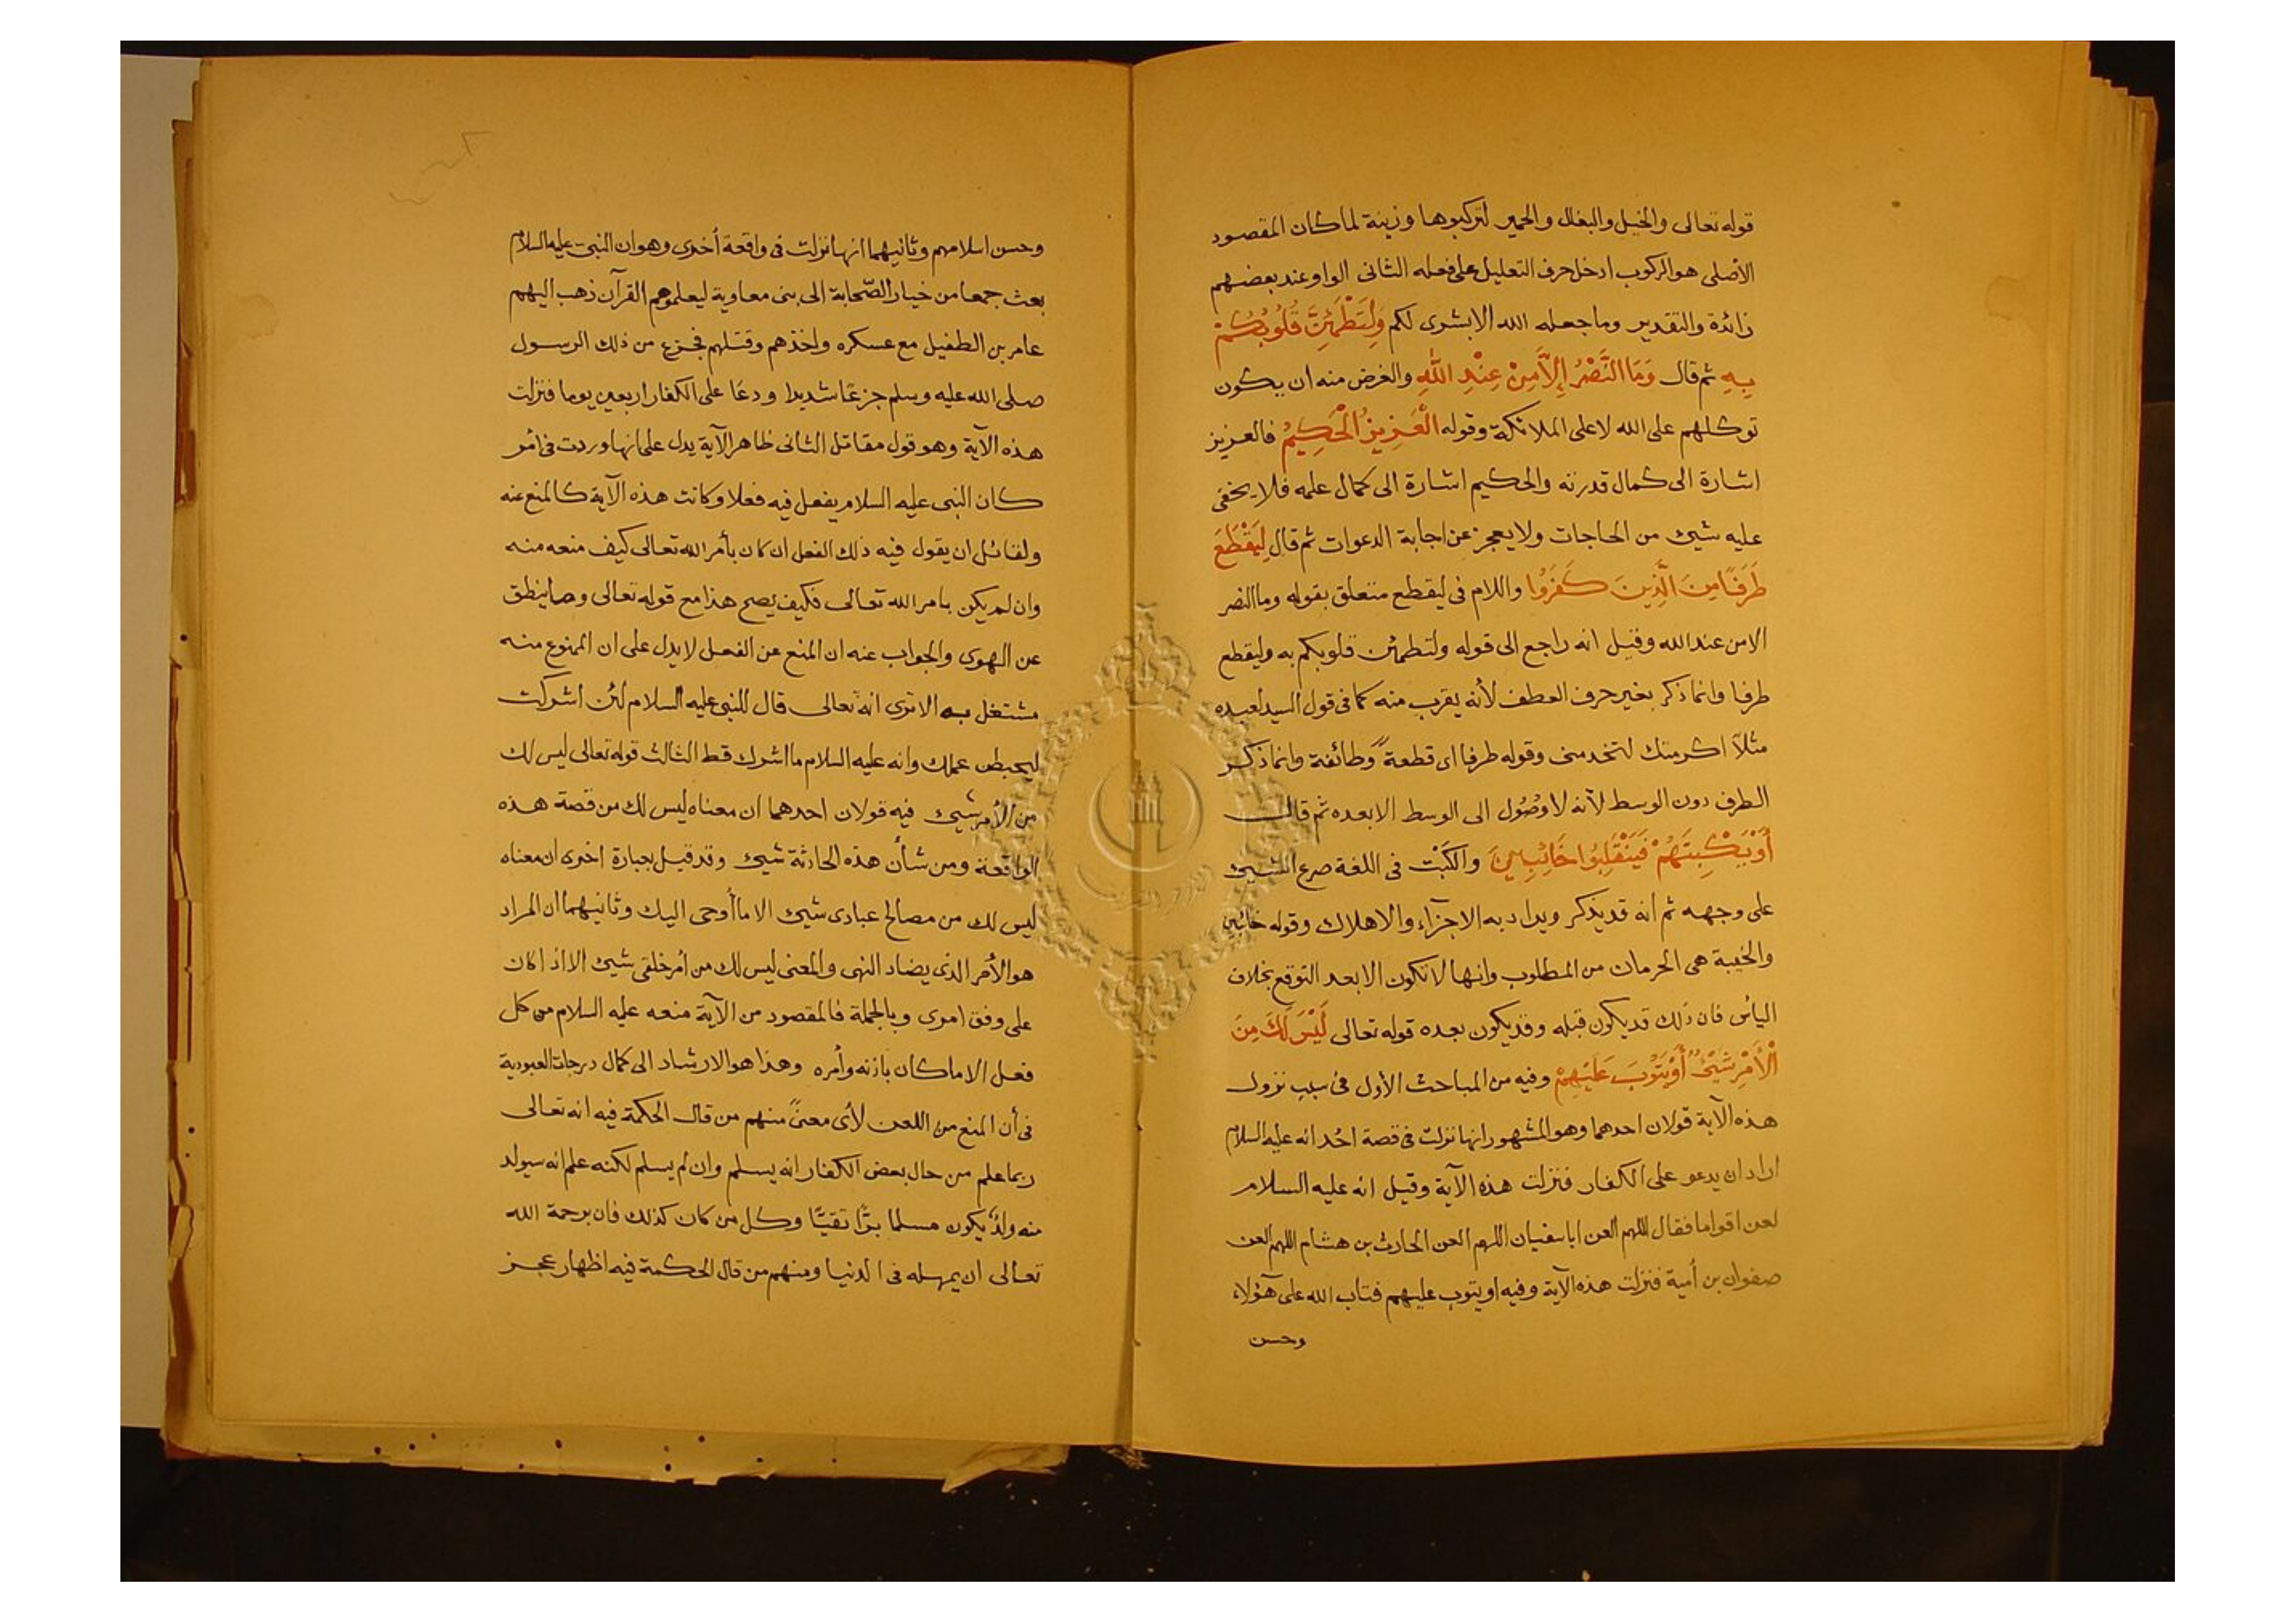 قوله تعالى والخيل والبغال والحمير لتركبوها وزينة لما كان المقصود
الأصلى هو الركوب ادخل حرف التعليل على فعله الثانى الواو عند بعضهم
زائدة والتقدير وما جعله الله الا بشرى لكم وَلِتَطْمَئِنَّ قُلُوبُكُمْ
بِهِ ثم قال وَمَا النَّصْرُ إِلَّا مِنْ عِنْدِ اللَّهِ والغرض منه ان يكون
توكلهم على الله لا على الملائكة وقوله الْعَزِيزُ الْحَكِيمُ فالعزيز
اشارة الى كمال قدرته والحكيم اشارة الى كمال علمه فلا يخفى
عليه شيئ من الحاجات ولا يعجز عن اجابة الدعوات ثم قال لِيَقْطَعَ
طَرَفًا مِنَ الَّذِينَ كَفَرُوا واللام فى ليقطع متعلق بقوله وما النصر
الا من عند الله وقيل انه راجع الى قوله ولتطمئن قلوبكم به وليقطع
طرفا وانما ذكر بغير حرف العطف لأنه يقرب منه كما فى قول السيد لعبده
مثلاً اكرمتك لتخدمنى وقوله طرفا اى قطعةً وطائفة وانما ذكر
الطرف دون الوسط لأنه لا وصُول الى الوسط الا بعده ثم قال
أَوْ يَكْبِتَهُمْ فَيَنْقَلِبُوا خَائِبِينَ والكَبْت فى اللغة صرع الشيئ
على وجهه ثم انه قد يذكر ويراد به الاجزآء والاهلاك وقوله خائبين
والخيبة هى الحرمان من المطلوب وانها لا تكون الا بعد التوقع بخلاف
اليأس فان ذلك قد يكون قبله وقد يكون بعده قوله تعالى لَيْسَ لَكَ مِنَ
الْأَمْرِ شَيْئٌ أَوْ يَتُوبَ عَلَيْهِمْ وفيه من المباحث الأول فى سبب نزول
هذه الآية قولان احدهما وهو المشهور انها نزلت فى قصة اُحُد انه عليه السلام
اراد ان يدعو على الكفار فنزلت هذه الآية وقيل انه عليه السلام
لعن اقواما فقال اللهم العن ابا سفيان اللهم العن الحارث بن هشام اللهم العن
صفوان بن أمية فنزلت هذه الآية وفيه او يتوب عليهم فتاب الله على هؤلاء
وحسن
وحسن اسلامهم وثانيهما انها نزلت فى واقعة أخرى وهو ان النبى عليه السلام
بعث جمعا من خيار الصّحابة الى بنى معاوية ليعلموهم القرآن ذهب اليهم
عامر بن الطفيل مع عسكره واخذهم وقتلهم فجزع من ذلك الرسول
صلى الله عليه وسلم جزعًا شديدا ودعَا على الكفار اربعين يوما فنزلت
هذه الآية وهو قول مقاتل الثانى ظاهر الآية يدل على انها وردت فى امر
كان النبى عليه السلام يفعل فيه فعلا وكانت هذه الآية كالمنع عنه
ولقائل ان يقول فيه ذلك الفعل ان كان بأمر الله تعالى كيف منعه منه
وان لم يكن بامر الله تعالى فكيف يصح هذا مع قوله تعالى وما ينطق
عن الهوى والجواب عنه ان المنع عن الفعل لا يدل على ان الممنوع منه
مشتغل به الا ترى انه تعالى قال للنبى عليه السلام لئن اشركت
ليحبطن عملك وانه عليه السلام ما اشرك قط الثالث قوله تعالى ليس لك
من الأمر شيئ فيه قولان احدهما ان معناه ليس لك من قصة هذه
الواقعة ومن شأن هذه الحادثة شيئ وقد قيل بعبارة اخرى ان معناه
ليس لك من مصالح عبادى شيئ الا ما أوحى اليك وثانيهما ان المراد
هو الأمر الذى يضاد النهى والمعنى ليس لك من أمر خلقى شيئ الا اذا كان
على وفق امرى وبالجملة فالمقصود من الآية منعه عليه السلام من كل
فعل الا ما كان باذنه وأمره وهذا هو الارشاد الى كمال درجات العبودية
فى أن المنع من اللعن لأى معنىً منهم من قال الحكمة فيه انه تعالى
ربما علم من حال بعض الكفار انه يسلم وان لم يسلم لكنه علم انه سيولد
منه ولدٌ يكون مسلما برًّا تقيًّا وكل من كان كذلك فان برحمة الله
تعالى ان يمهله فى الدنيا ومنهم من قال الحكمة فيه اظهار عجز